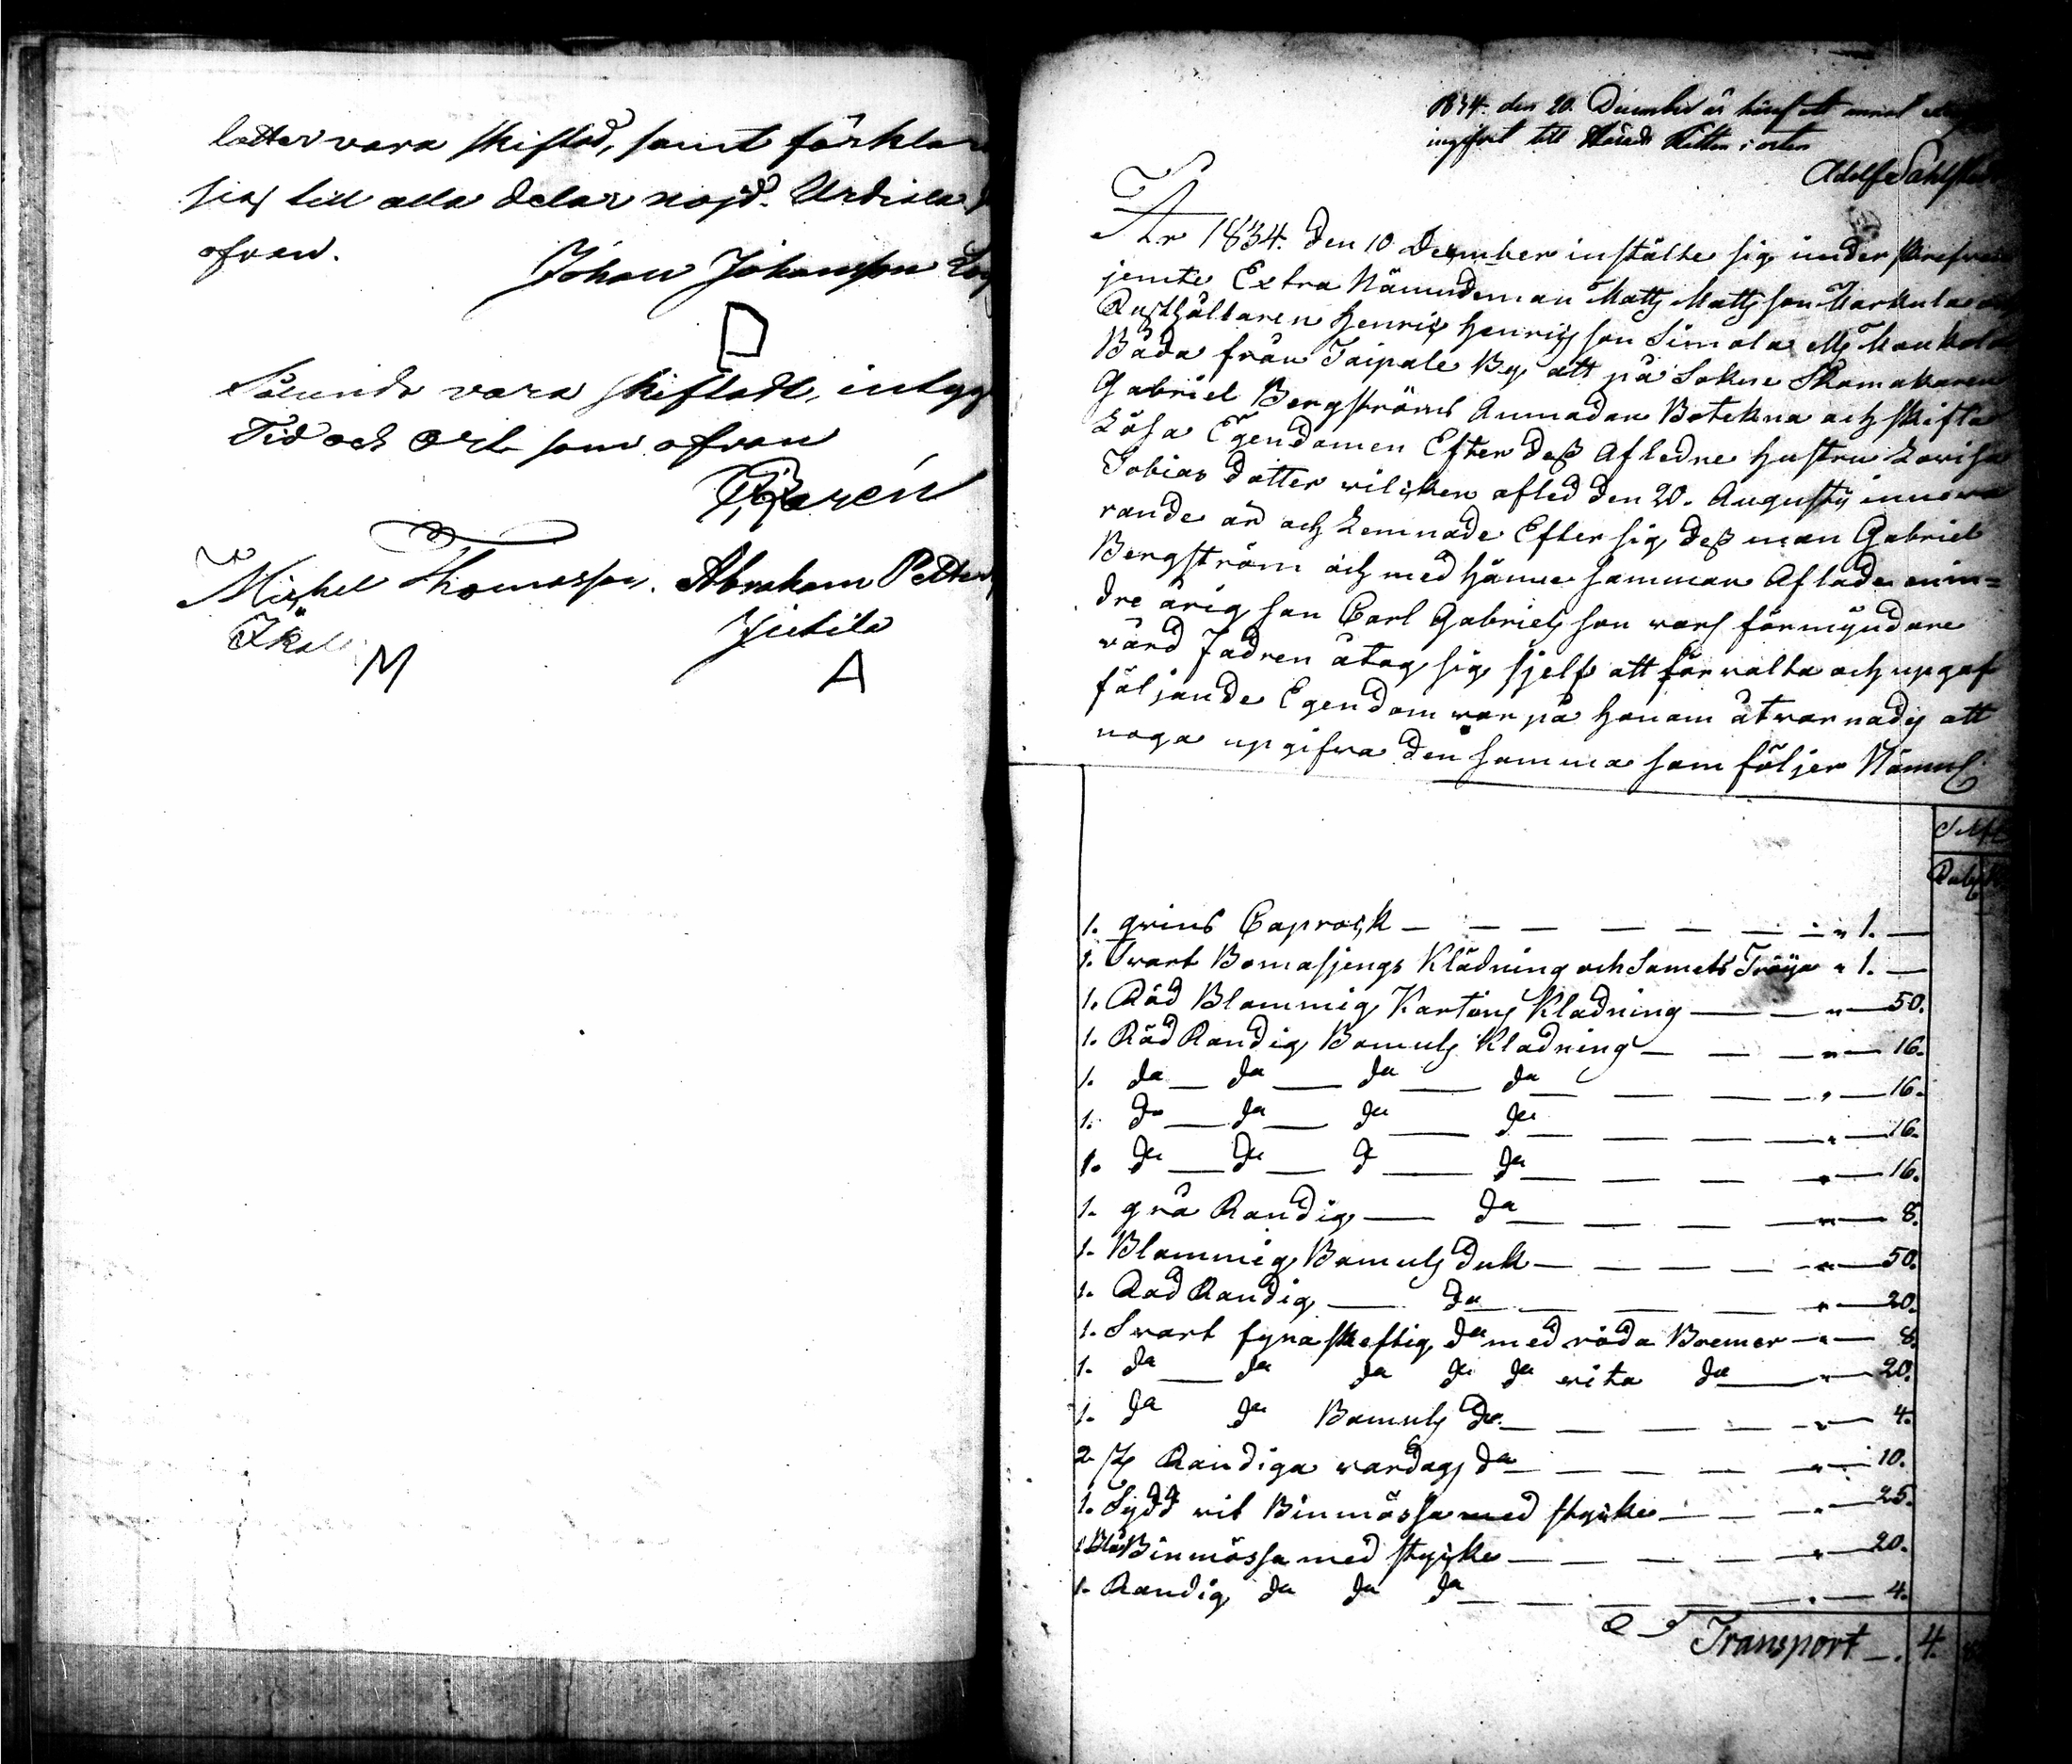 lotter vara skiftad, samt förklar
sig till alla delar nöjd. Urdiala
ofvan.
Johan Johansson
Sålunda vara skiftadt, intyga
Tid och Ort som ofvan
Michel Thomasson. Abraham Petter
Jutila
M A
1834. den 20. December är häraf ett annat
ingifvit till Härads Rätten i orten
Adolf Sahlstedt
År 1834. den 10 December instälte sig underskrefvne
jemte Extra Nämndeman Matts Mattsson Markula och
Rusthållaren Henric Henricsson Simola
Båda från Taipale By att på Sokne Skomakaren
Gabriel Bergströms Anmodan Beteckna och skifta
Lösa Egendomen Efter dess Afledne Hustru Lovisa
Tobias dotter vilcken afled den 20. Augusty inneva
rande år och Lemnade Efter sig dess man Gabriel
Bergström och med henne samman Aflade min=
dre årig son Carl Gabriels son wars förmyndare
vård Fadren åtog sig sjelf att förvalta och upgaf
följande Egendom war på honom åtvarnades att
noga upgifva den samma som följer Nämnl
1. grins Caprock — — — — — — " 1. —
1. Svart Bomasjengs Klädning och Samets Tröya " 1. —
1. Röd Blommig Kartons Kladning — — " — 50.
1. Röd Randig Bomuls Kladning — — — " — 16.
1. da — da — da — da — — — — " — 16.
1. da — da — da — da — — — — " — 16.
1. da — da — d — da — — — — " — 16.
1. grå Randig — da — — — — " — 8.
1. Blommig Bomuls duk — — — — — " — 50.
1. Röd Randig — da — — — — " — 20.
1. Svart fyraskeftig da med röda Bremer — " — 8.
1. da — da da da da vita da — " — 20.
1. da da Bomuls da — — — — — " — 4.
2 st Randiga vardags da — — — — — " — 10.
1. Sydd vit Binmössa med stycke — — — " — 25.
1. Blå Binmössa med stycke — — — — " — 20.
1. Randig da da da — — — — — " — 4.
Transport — . 4.